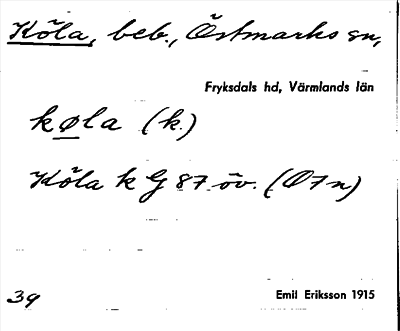 Köla, beb., Östmarks sn,
Fryksdals hd, Värmlands län
køla (k.)
Köla k G 87 öv. (O7n)
39
Emil Eriksson 1915